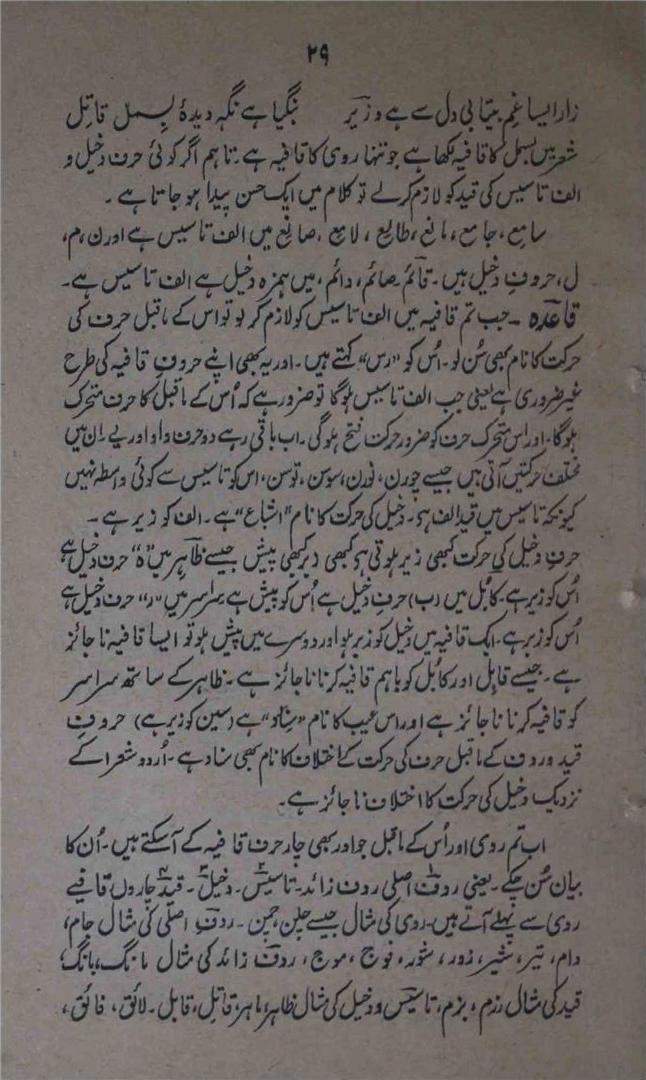 ۲۹
زار ایسا غمِ بیتابیِ دل سے ہے وزیر بنگیا ہے نگہ دیدۂ بِسمل قاتِل
شعر میں بسمل کا قافیہ لکھا ہے جو تنہا روی کا قافیہ ہے۔ تاہم اگر کوئی حرف دخیل و
الف تاسیس کی قید کو لازم کرلے تو کلام میں ایک حسن پیدا ہو جاتا ہے۔
سامِع، جامِع، مانِع، طالِع، لامِع، صانِع میں الف تاسیس ہے اور ن، م،
ل، حروفِ دخیل ہیں۔ قائم۔ صائم، دائم، میں ہمزہ دخیل ہے الف تاسیس ہے۔
قاعدہ۔ جب تم قافیہ میں الف تاسیس کو لازم کر لو تو اس کے ماقبل حرف کی
حرکت کا نام بھی سُن لو۔ اُس کو "رس" کہتے ہیں۔ اور یہ بھی اپنے حروف قافیہ کی طرح
غیر ضروری ہے یعنی جب الف تاسیس ہوگا تو ضرور ہے کہ اُس کے ماقبل کا حرف متحرک
ہوگا۔ اور اس متحرک حرف کو ضرور حرکت فتح ہوگی۔ اب باقی رہے دو حرف واو اور یے۔ ان میں
مختلف حرکتیں آتی ہیں جیسے چورن، نورن، سوسن، توسن، اس کو تاسیس سے کوئی واسطہ نہیں
کیونکہ تاسیس میں قید الف ہے۔ دخیل کی حرکت کا نام "اشباع" ہے۔ الف کو زیر ہے۔
حرفِ دخیل کی حرکت کبھی زیر ہوتی ہے کبھی زبر کبھی پیش جیسے ظاہر میں "ہ" حرف دخیل ہے
اُس کو زیر ہے۔ کابُل میں (ب) حرفِ دخیل ہے اُس کو پیش ہے سراسر میں "ر" حرف دخیل ہے
اُس کو زبر ہے۔ ایک قافیہ میں دخیل کو زیر ہو اور دوسرے میں پیش ہو تو ایسا قافیہ ناجائز
ہے۔ جیسے قابِل اور کابُل کو باہم قافیہ کرنا ناجائز ہے۔ ظاہر کے ساتھ سراسر
کو قافیہ کرنا ناجائز ہے اور اس عیب کا نام "سِناد" ہے (سین کو زیر ہے) حروفِ
قید و ردف کے ماقبل حرف کی حرکت کے اختلاف کا نام بھی سناد ہے۔ اُردو شعرا کے
نزدیک دخیل کی حرکت کا اختلاف ناجائز ہے۔
اب تم روی اور اُس کے ماقبل جو اور بھی چار حرف قافیہ کے آسکتے ہیں۔ اُن کا
بیان سُن چکے۔ یعنی ردف اصلی ردف زائد۔ تاسیس۔ دخیل۔ قید چاروں قافیے
روی سے پہلے آتے ہیں۔ روی کی مثال جیسے چلن، چمن۔ ردفِ اصلی کی مثال جام،
دام، تیر، شیر، زور، شور، فوج، موج، ردف زائد کی مثال مانگ، بانگ،
قید کی مثال رزم، بزم، تاسیس و دخیل کی مثال ظاہر، ماہر، قاتِل، قابل۔ لائق، فائق،